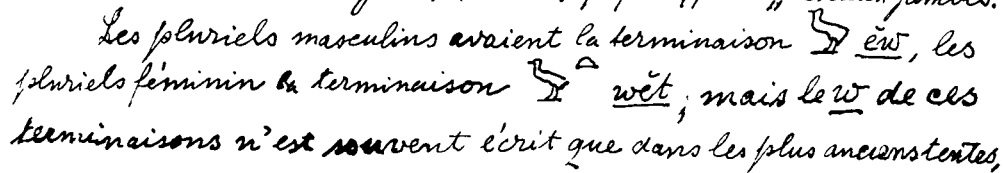 Les pluriels masculins avaient la terminaison 𓅱 ĕw, les
pluriels féminin la terminaison 𓅱𓏏 wĕt, mais le w de ces
terminaisons n'est souvent écrit que dans les plus anciens textes,